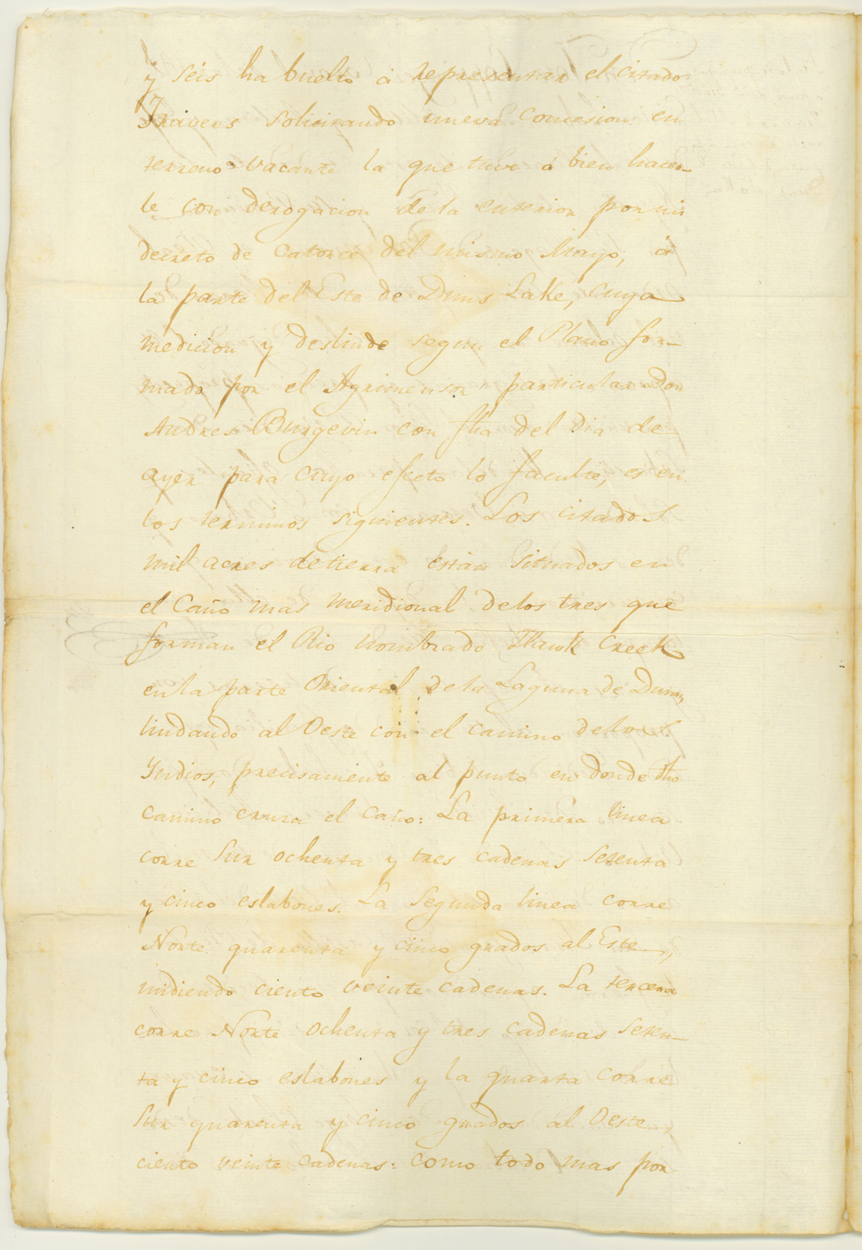 y seis ha buelto á representar el citado
Travers solicitando nueva Concesion en
terreno vacante la que tuve á bien hacer-
le con derogacion de la anterior por mi
decreto de Catorce del mismo Mayo, á
la parte del Este de Dunns Lake, cuya
medicion y deslinde segun el Plano for-
mado por el Agrimensor particular Don
Andres Burgevin con fha del dia de
ayer para cuyo efecto lo faculte, es en
los terminos siguientes. Los citados
mil acres de tierra estan situados en
el Caño mas meridional de los tres que
forman el Rio nombrado Hawk Creek
en la parte Oriental de la Laguna de Dunns,
lindando al Oeste con el camino de los
Yndios, precisamente al punto en donde dho
camino cruza el caño: La primera linea
corre Sur ochenta y tres cadenas setenta
y cinco eslabones. La Segunda linea corre
Norte quarenta y cinco grados al Este,
midiendo ciento veinte cadenas. La tercera
corre Norte ochenta y tres cadenas seten-
ta y cinco eslabones y la quarta corre
Sur quarenta y cinco grados al Oeste,
ciento veinte cadenas: como todo mas por